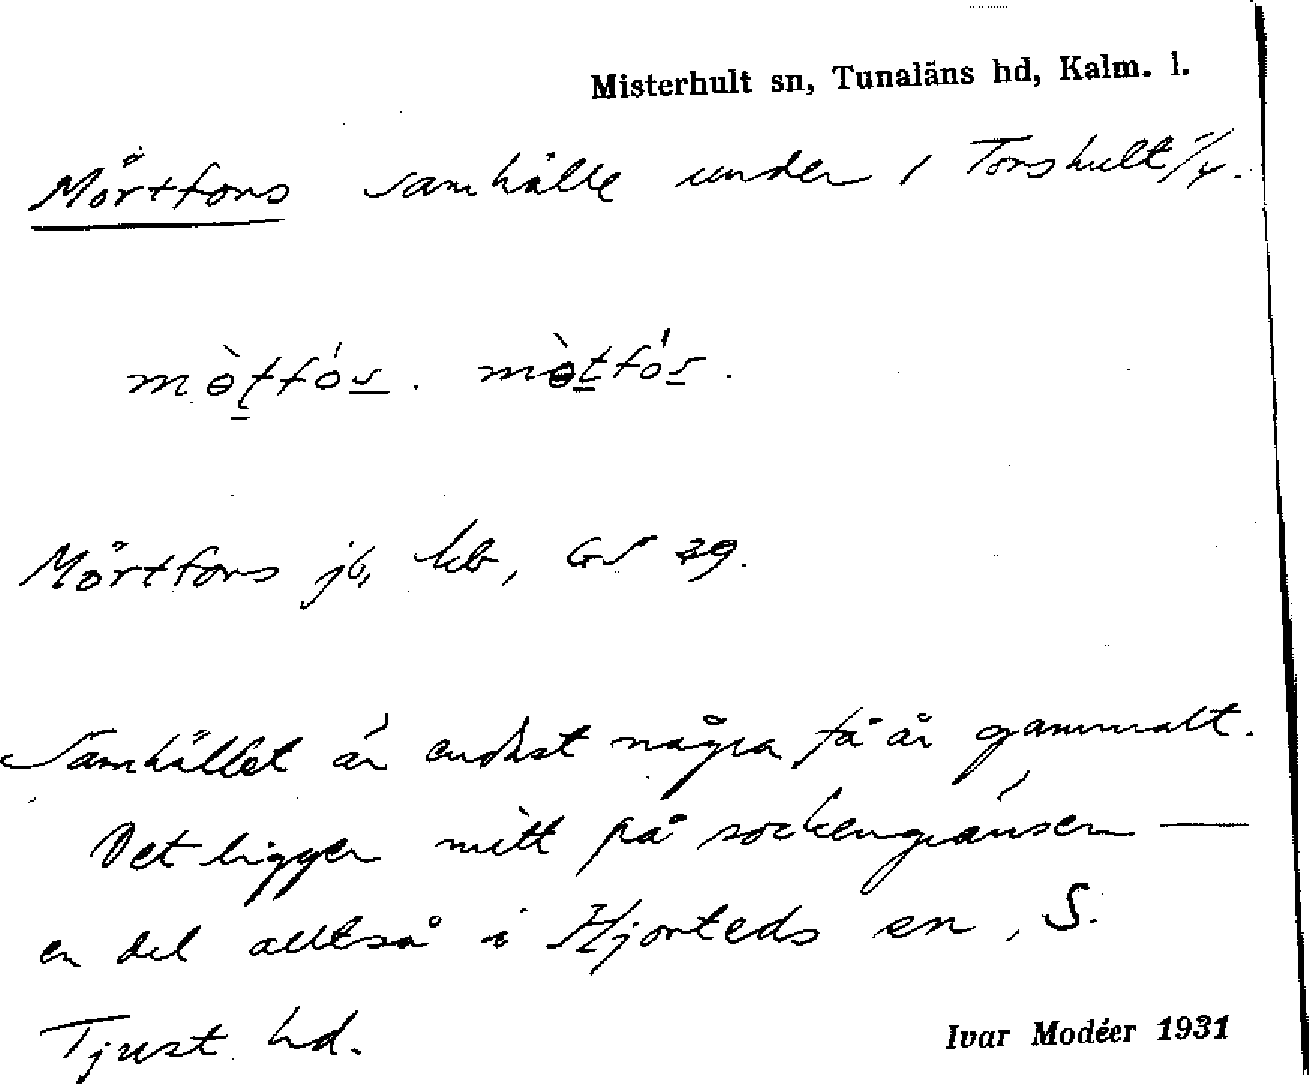 Misterhult sn, Tunaläns hd, Kalm. l.
Mörtfors samhälle under 1 Torshult 1/4.
mò̱tfós. mò̱tfós.
Mörtfors jb, kb, GS 29.
Samhället är endast några få år gammalt.
Det ligger mitt på sockengränsen —
en del alltså i Hjorteds sn, S.
Tjust hd.
Ivar Modéer 1931